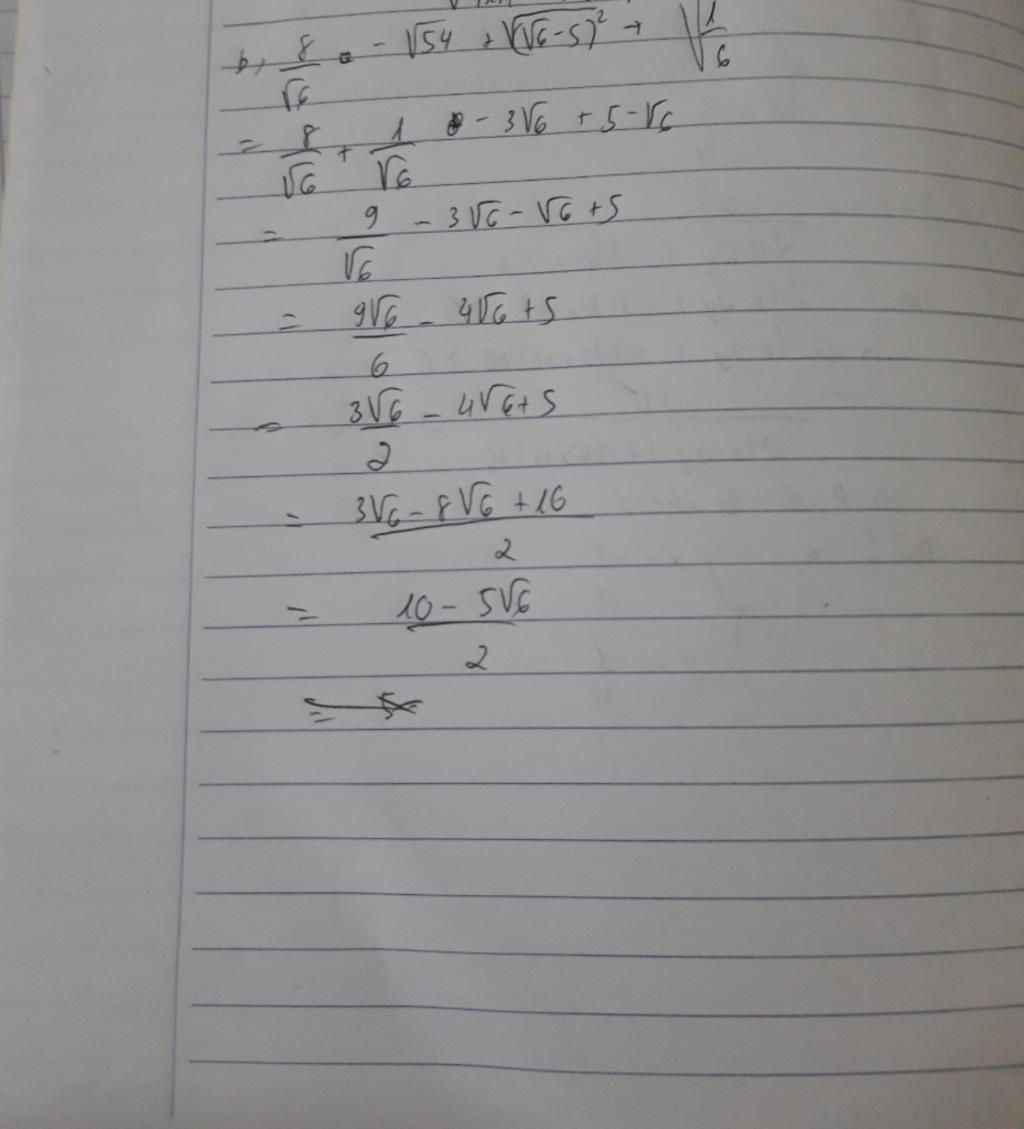 b, 8/√6 - √54 + √(√6-5)² + √1/6
= 8/√6 + 1/√6 - 3√6 + 5-√6
= 9/√6 - 3√6 - √6 + 5
= 9√6/6 - 4√6 + 5
= 3√6/2 - 4√6 + 5
= 3√6 - 8√6 + 16/2
= 10 - 5√6/2